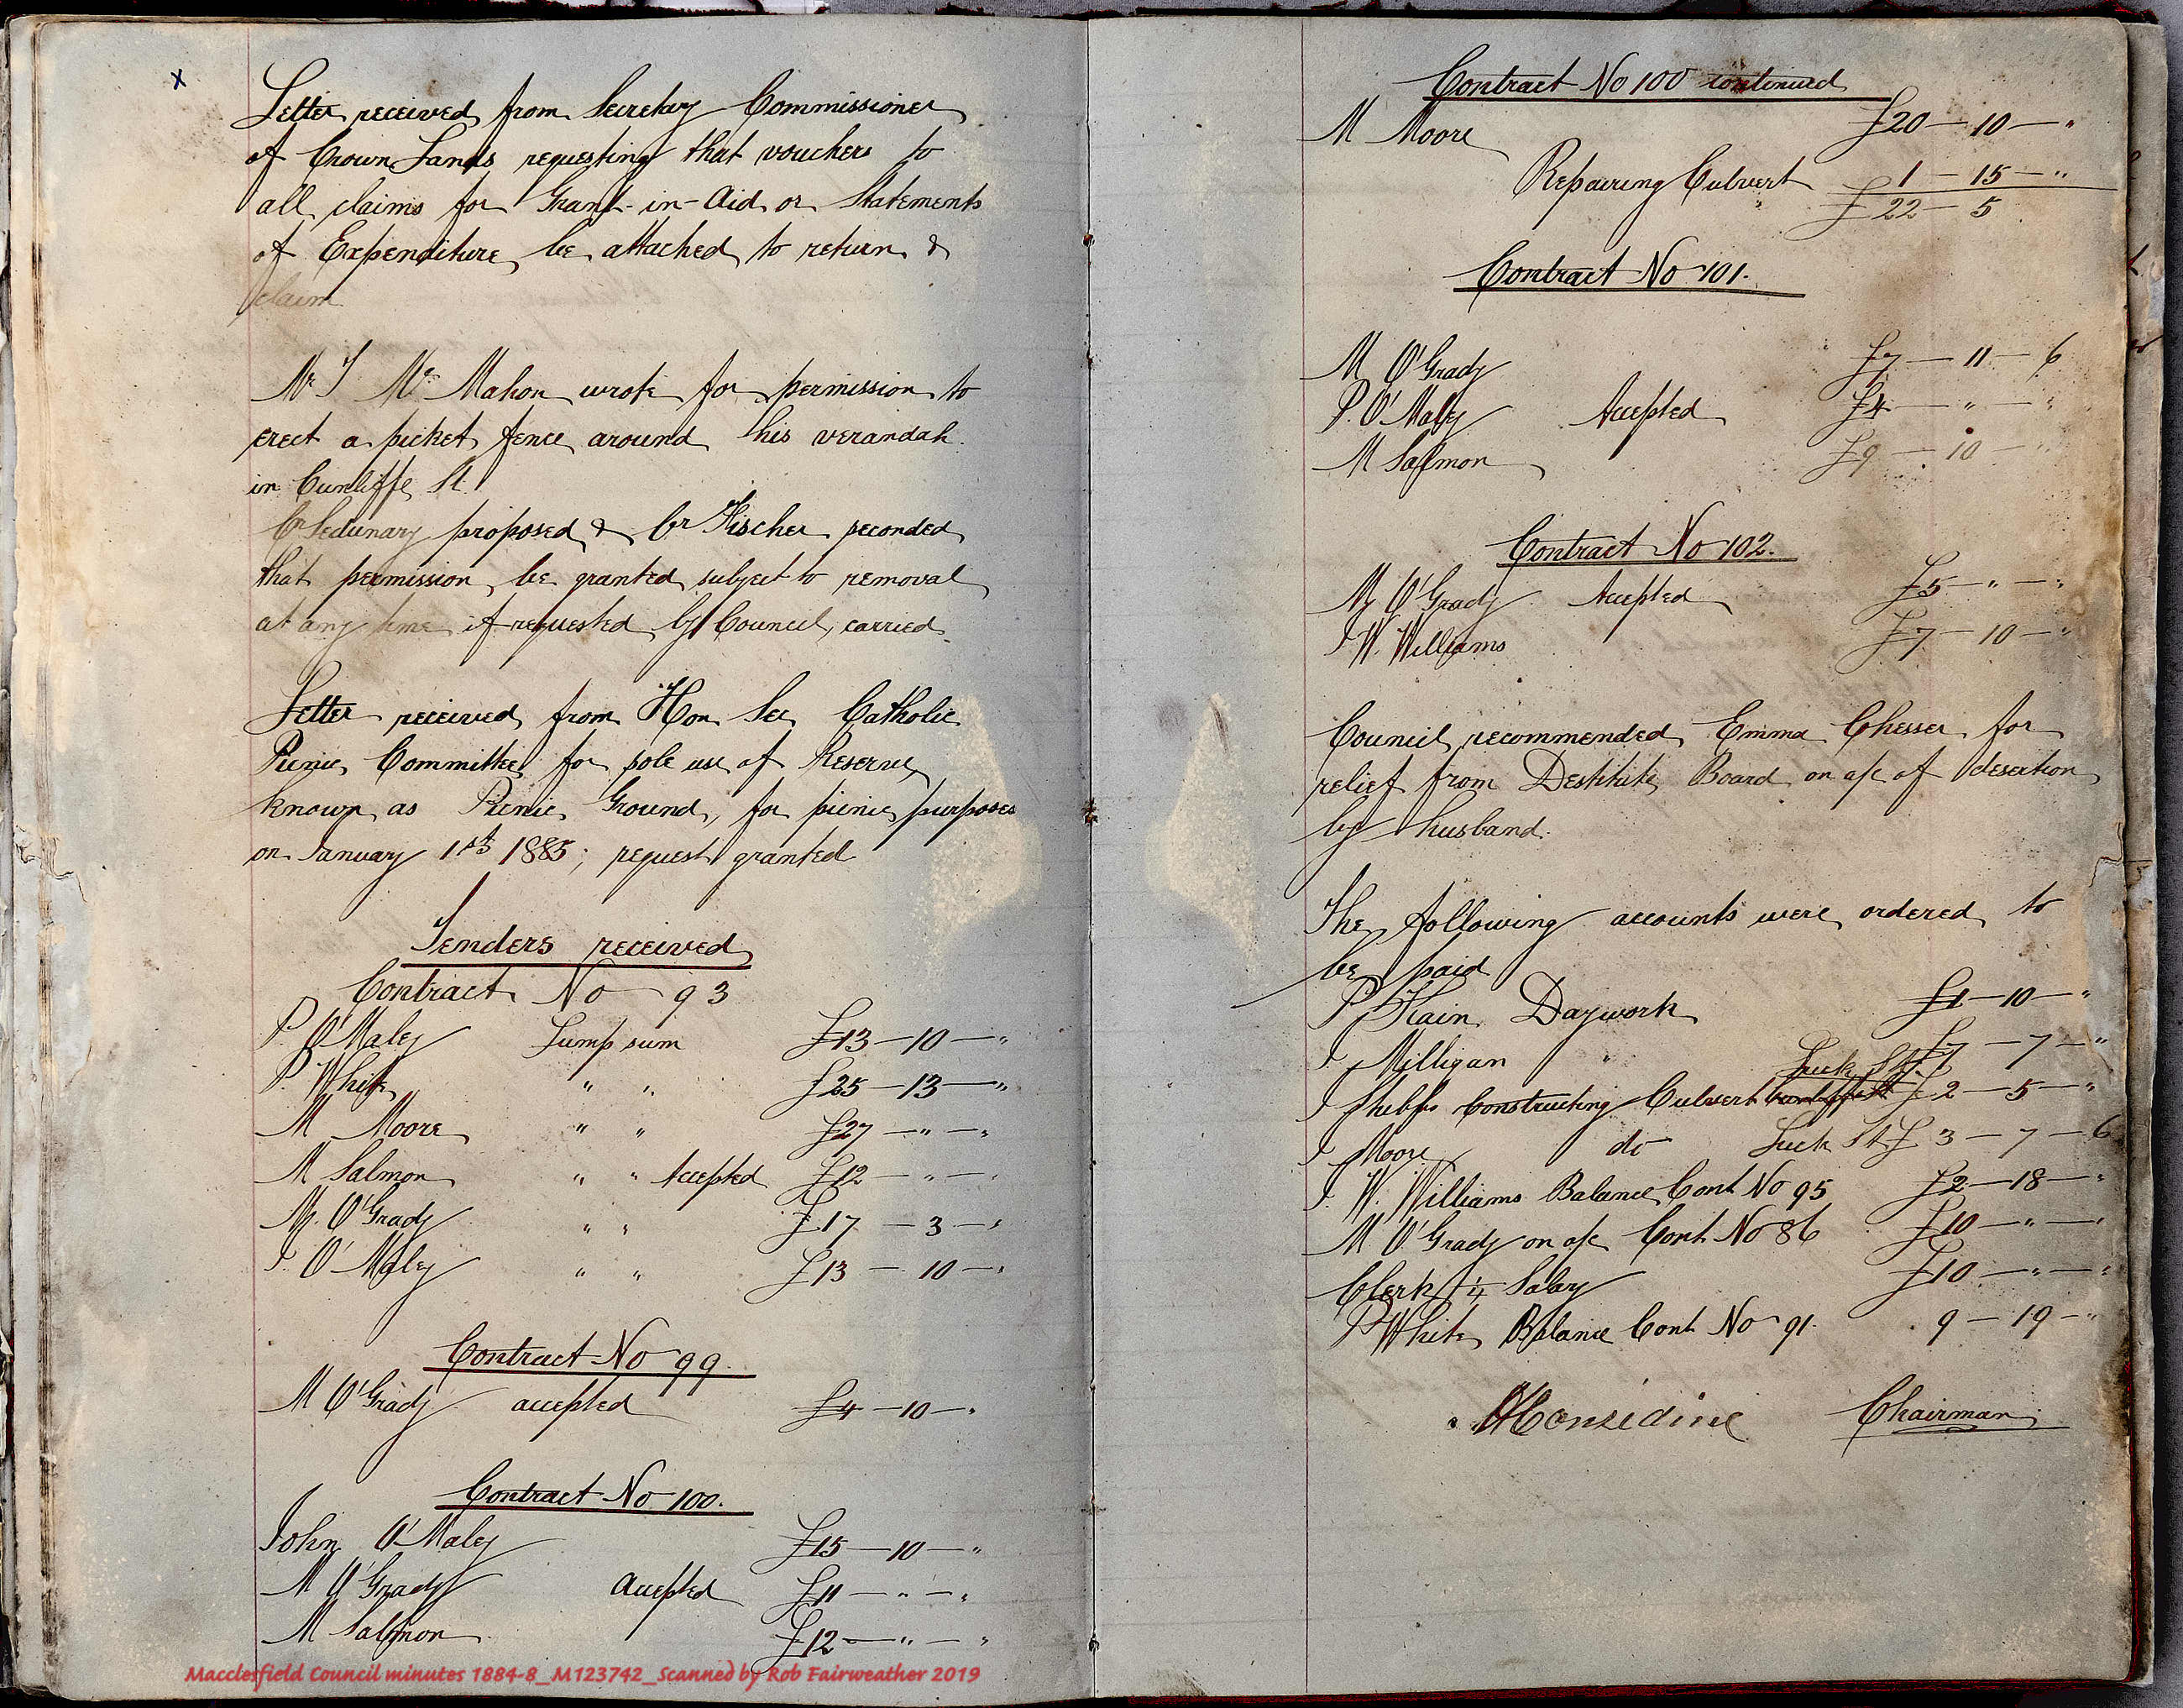 x
Letter received from Secretary Commissioner
of Crown Lands requesting that vouchers to
all claims for Grant-in-Aid or Statements
of Expenditure be attached to return &
claim
Mr J McMahon wrote for permission to
erect a picket fence around his verandah
in Cunliffe St.
Cr Sedunary proposed & Cr Fischer seconded
that permission be granted subject to removal
at any time if requested by Council, carried.
Letter received from Hon Sec Catholic
Picnic Committee for sole use of Reserve
known as Picnic Ground, for picnic purposes
on January 1st 1885; request granted
Tenders received
Contract No 93
P. O'Maley Lump sum £13-10-"
P. White " " £25-13-"
M Moore " " £27-"-"
M Salmon " " Accepted £12-"-"
M. O'Grady " " £17-3-"
J. O'Maley " " £13-10-"
Contract No 99.
M O'Grady accepted £4-10-"
Contract No 100.
John O'Maley £15-10-"
M O'Grady Accepted £11-"-"
M Salmon £12-"-"
Macclesfield Council minutes 1884-8_M123742_Scanned by Rob Fairweather 2019
Contract No 100 continued
M Moore £20-10-"
Repairing Culvert 1-15-"
£22-5
Contract No 101.
M O'Grady £7-11-6
P. O'Maley Accepted £4-"-"
M Salmon £9-10-"
Contract No 102.
M O'Grady Accepted £5-"-"
J W. Williams £7-10-"
Council recommended Emma Chesser for
relief from Destitute Board on a/c of desertion
by husband.
The following accounts were ordered to
be paid
P Kain Daywork £1-10-"
J Milligan " £7-7-"
Luck St
J Shibbs Constructing Culvert Cunliffe St £2-5-"
J Moore do Luck St £3-7-6
J. W. Williams Balance Cont No 95 £2-18-"
M O'Grady on a/c Cont No 86 £10-"-"
Clerk 1/4 Salary £10-"-"
P White Balance Cont No 91. 9-19-"
Considine Chairman